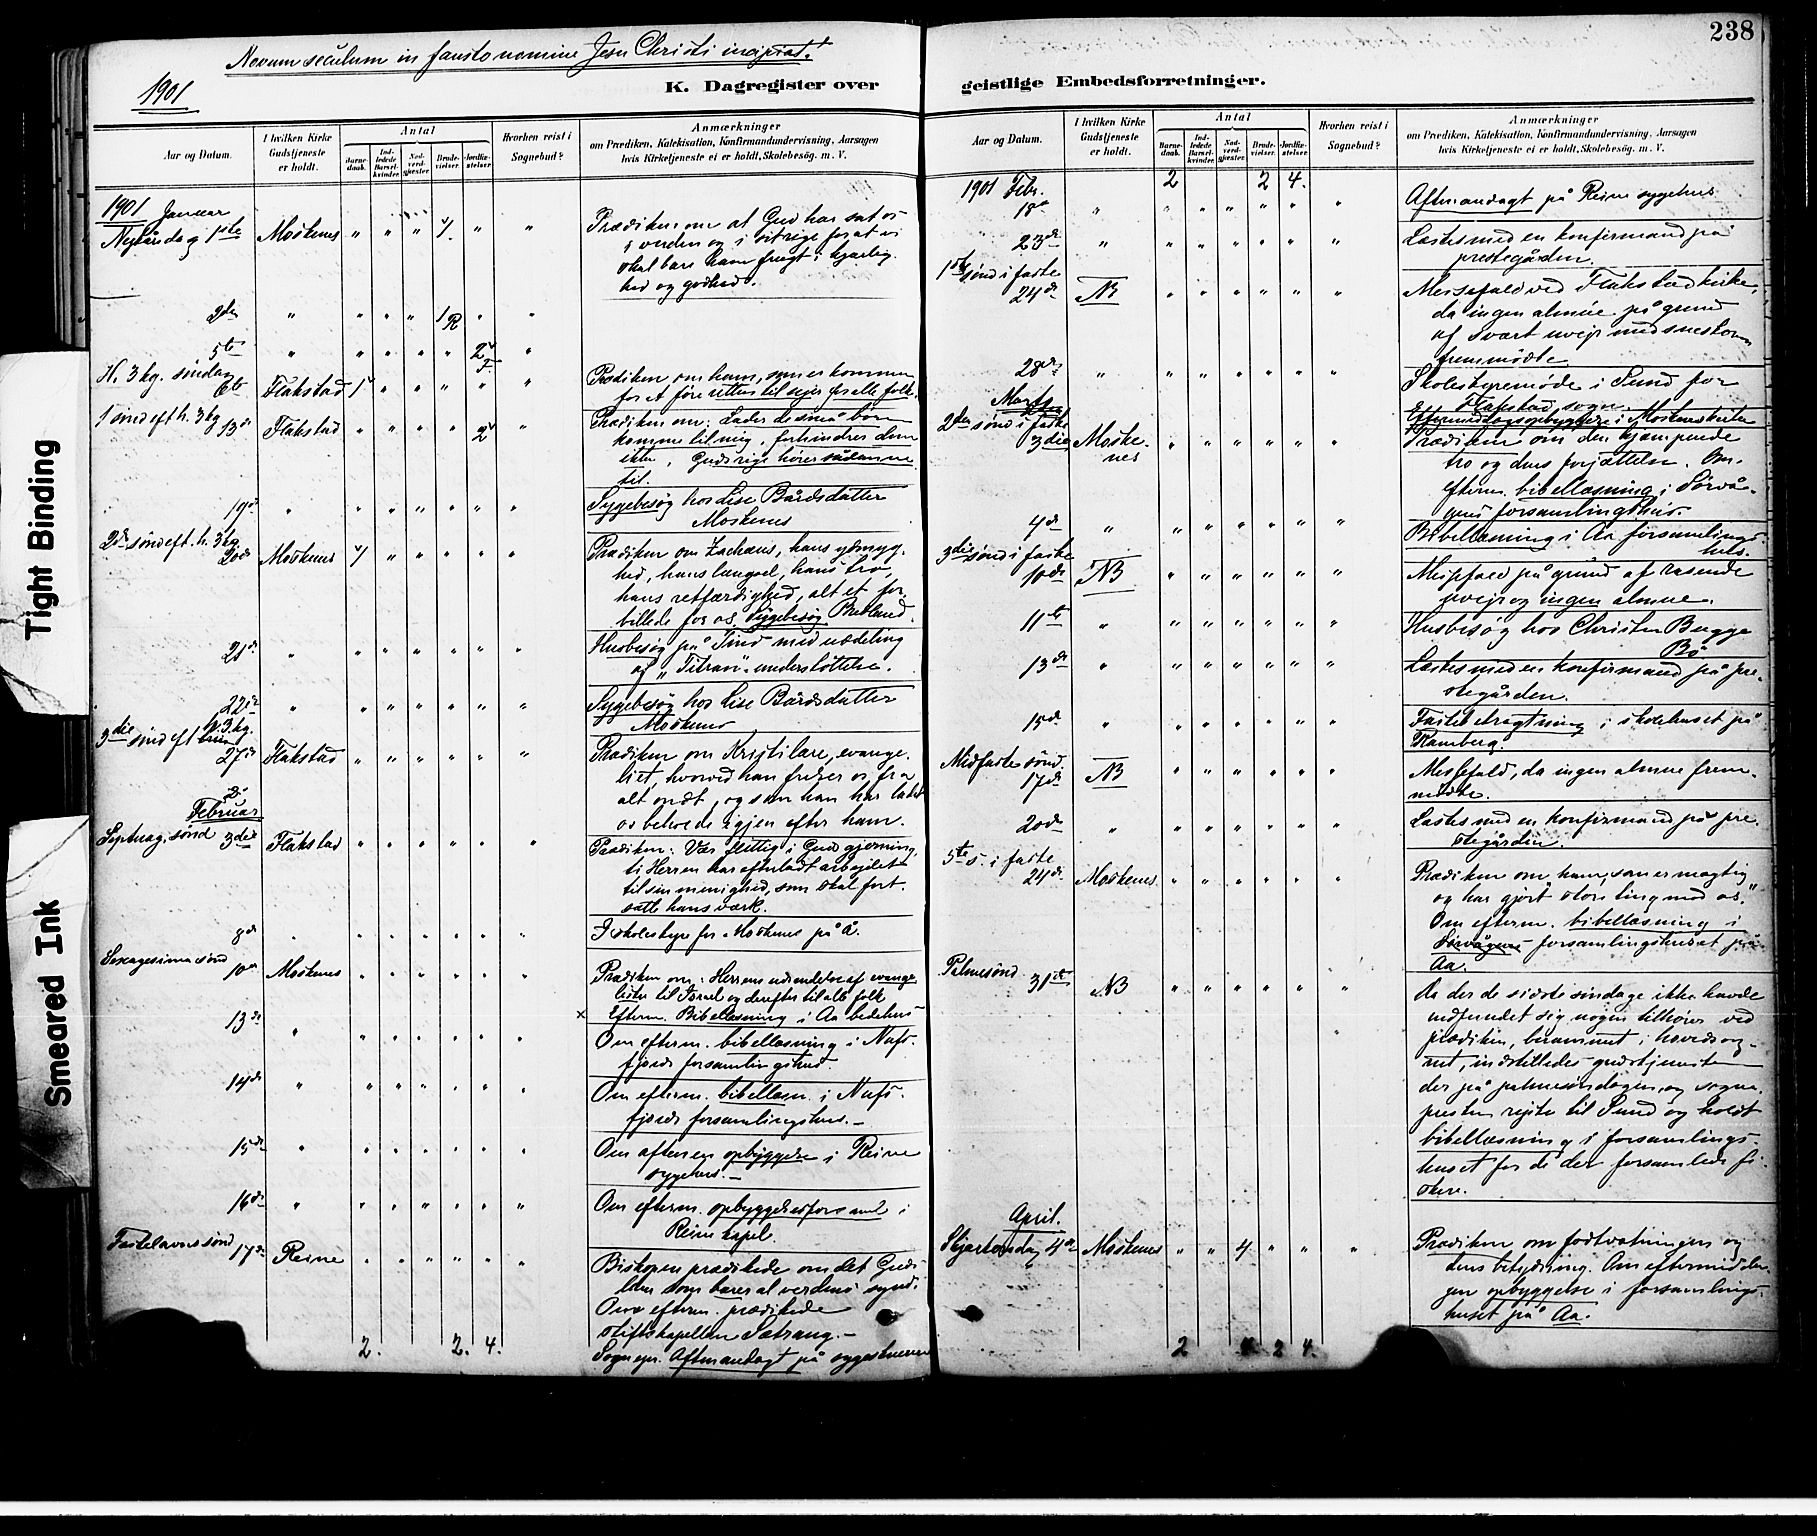 238
Novum seculum in fausto nomine Jesu Christi incipiat!
1901
K. Dagregister over geistlige Embedsforretninger.
Aar og Datum.
I hvilken Kirke Gudstjeneste er holdt.
Antal
Barnedaab.
Indledede Barselkvinder.
Nadverdgjæster.
Brudevielser.
Jordfæstelser.
Hvorhen reist i Sognebud?
Anmærkninger
om Prædiken, Katekisation, Konfirmandundervisning, Aarsagen
hvis Kirketjeneste ei er holdt, Skolebesög m. V.
1901 Januar
Nyårsdag 1ste Moskenes " " " 1 " " Prædiken om at Gud har sat os
i verden og i sit rige for at vi
skal bære ham frugt i kjærlighed
og godhed.
2den " " " " 1 R " "
5te " " " " " 2 "
H. 3 kg. søndag
6te Flakstad 1 " " " " " Prædiken om ham, som er kommen
for at føre retten til sejer for alle folk.
1 sønd eft h. 3 kg 13de Flakstad " " " " 2 " Prædiken om: Lader de små børn
komme til mig, forhindrer dem
ikke, Guds rige hører sådanne
til.
19de " " " " " " " Sygebesøg hos Lise Bårdsdatter
Moskenes
2den sønd eft. h. 3 kg
20de Moskenes 1 " " " " " Prædiken om Zachæus, hans ydmyghed,
hans længsel, hans tro,
hans retfærdighed, alt et forbillede
for os. Sygebesøg Bredland.
21de " " " " " " " Husbesøg på Tind med uddeling
af "Titran"-understöttelse.
22de " " " " " " " Sygebesøg hos Lise Bårdsdatter
Moskenes
3die sønd eft h. 3 kg.
27de Flakstad " " " " " " Prædiken om Kristi lære, evangeliet,
hvorved han frelser os fra
alt ondt, og som han har ladet
os beholde igjen efter ham.
Februar
Septuag. sønd 3die Flakstad " " " " " " Prædiken: Vær flittig i Guds gjerning,
ti Herren har efterladt arbejdet
til sin menighed, som skal fortsætte
hans værk.
8de " " " " " " " I skolestyre for Moskenes på Å.
Sexagesima sønd
10de Moskenes " " " " " " Prædiken om: Herrens udsendelse af evangelister
til Israel og derefter til alle folk
Efterm. Bibellæsning i Aa bedehus
13de " " " " " " " Om efterm. bibellæsning i Nufsfjords
forsamlingshus.
14de " " " " " " " Om efterm. bibellæsn. i Nufsfjords
forsamlingshus. –
15de " " " " " " " Om aftenen opbyggelse i Reine
sygehus. –
16de " " " " " " " Om efterm. opbyggelsesforsaml. i
Reine kapel.
Fastelavns sønd
17de Reine " " " " " " Biskopen prædikede om det Guds
lam som bærer al verdens synd.
Om efterm. prædikede
stiftskapellan Sætrang. –
Sognepr. Aftenandagt på sygestuerne
2. 2. 4.
1901 Febr. 2 2 4.
18de " " " " " " " Aftenandagt på Reine sygehus
23de " " " " " " " Læstes med en konfirmand på
prestegården.
1ste sønd i faste
24de NB " " " " " " Messefald ved Flakstad kirke,
da ingen almue på grund
af svært uvejr med snestorm
fremmödte
28de " " " " " " " Skolestyremöde i Sund for
Flakstad sogn.
Marts
2den sönd i faste
3die Moskenes " " " " " " Eftermiddagsopbyggelse i Moskenes
Prædiken om den kjæmpende
tro og dens forjættelse. Om
efterm. bibellæsning i Sörvågens
forsamlingshus.
4de " " " " " " " Bibellæsning i Aa forsamlingshus.
3die sønd i faste
10de NB " " " " " " Messefald på grund af rasende
uvejr og ingen almue.
11te " " " " " " " Husbesøg hos Christen Bugge
Bö
13de " " " " " " " Læstes med en konfirmand på prestegården.
15de " " " " " " " Fastebetragtning i skolehuset på
Ramberg.
Midfaste sønd.
17de NB " " " " " " Messefald, da ingen almue fremmödte.
20de " " " " " " " Læstes med en konfirmand på prestegården.
5te s. i faste
24de Moskenes " " " " " " Prædiken om ham, som er mægtig
og har gjört store ting mod os."
Om efterm. bibellæsning i
Sörvågens forsamlingshuset på
Aa.
Palmesønd
31te NB " " " " " " Da der de sidste söndage ikke havde
indfundet sig nogen tilhörer ved
prædiken, berammet i hovedsognet,
indstilledes gudstjenesten
der på palmesöndagen, og sognepresten
rejste til Sund og holdt
bibellæsning i forsamlingshuset
for de der forsamlede fiskere.
April.
Skjærtorsdag 4de Moskenes " " 4 " " " Prædiken om fodtvætningen og
dens betydning. Om eftermiddagen
opbyggelse i forsamlingshuset
på Aa.
2 4 2 4.
Tight Binding
Smeared Ink